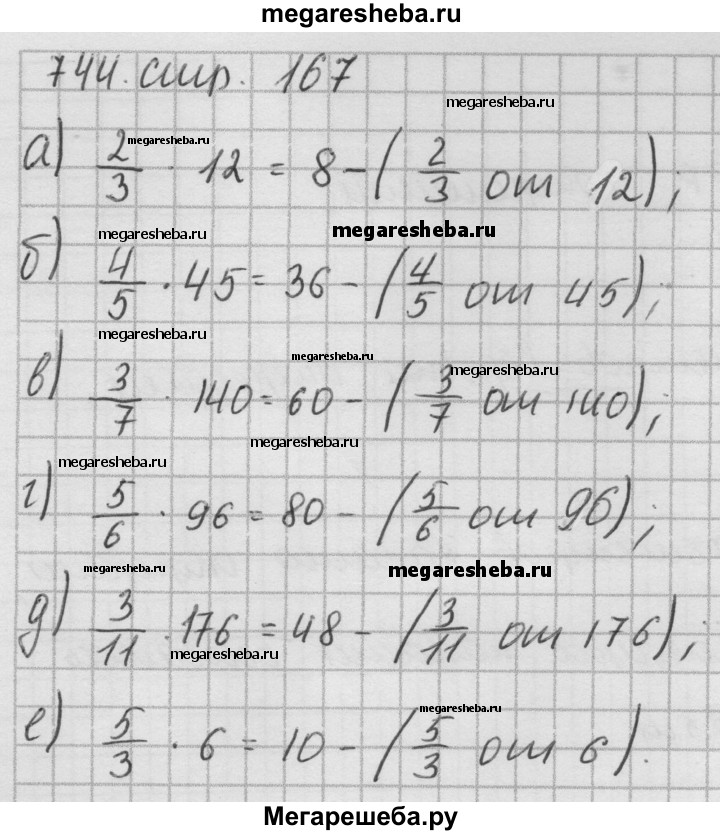 megaresheba.ru
744. стр. 167
megaresheba.ru
а) 2/3 · 12 = 8 - (2/3 от 12);
megaresheba.ru
megaresheba.ru
megaresheba.ru
б) 4/5 · 45 = 36 - (4/5 от 45);
megaresheba.ru
megaresheba.ru
megaresheba.ru
в) 3/7 · 140 = 60 - (3/7 от 140);
megaresheba.ru
megaresheba.ru
г) 5/6 · 96 = 80 - (5/6 от 96);
megaresheba.ru
megaresheba.ru
д) 3/11 · 176 = 48 - (3/11 от 176);
megaresheba.ru
megaresheba.ru
е) 5/3 · 6 = 10 - (5/3 от 6).
megaresheba.ru
Мегарешеба.ру